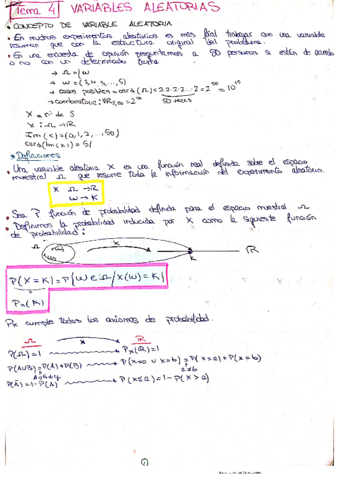 Tema 4 VARIABLES ALEATORIAS
• CONCEPTO DE VARIABLE ALEATORIA
• En muchos experimentos aleatorios es más fácil trabajar con una variable
resumen que con la estructura original del problema.
• En una encuesta de opinión preguntamos a 50 personas si están de acuerdo
o no con un determinado tema
→ Ω = {ω
→ ω = (S, N, S, ..., S)
→ casos posibles = card(Ω) = 2·2·2·2...·2 = 2^50 = 10^15
50 veces
X = nº de S
X : Ω → R
Im(X) = {0, 1, 2, ..., 50}
card(Im X) = 51
• Definiciones
• Una variable aleatoria X es una función real definida sobre el espacio
muestral Ω que resume toda la información del experimento aleatorio.
X Ω → R
ω → K
• Sea P función de probabilidad definida para el espacio muestral Ω
• Definimos la probabilidad inducida por X como la siguiente función
de probabilidad:
Ω X R
K
P(X = K) = P{ω ∈ Ω / X(ω) = K}
Px(K)
Px cumple todos los axiomas de probabilidad.
Ω X R
P(Ω) = 1 → Px(R) = 1
P(A∪B) = P(A) + P(B) → P(X=a ∪ X=b) = P(X=a) + P(X=b)
a≠b
P(Ā) = 1 - P(A) → P(X≤a) = 1 - P(X>a)
1